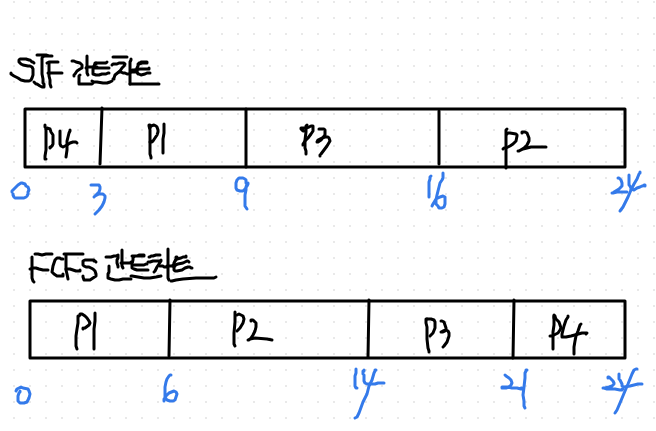 SJF 간트차트
P4 P1 P3 P2
0 3 9 16 24
FCFS 간트차트
P1 P2 P3 P4
0 6 14 21 24